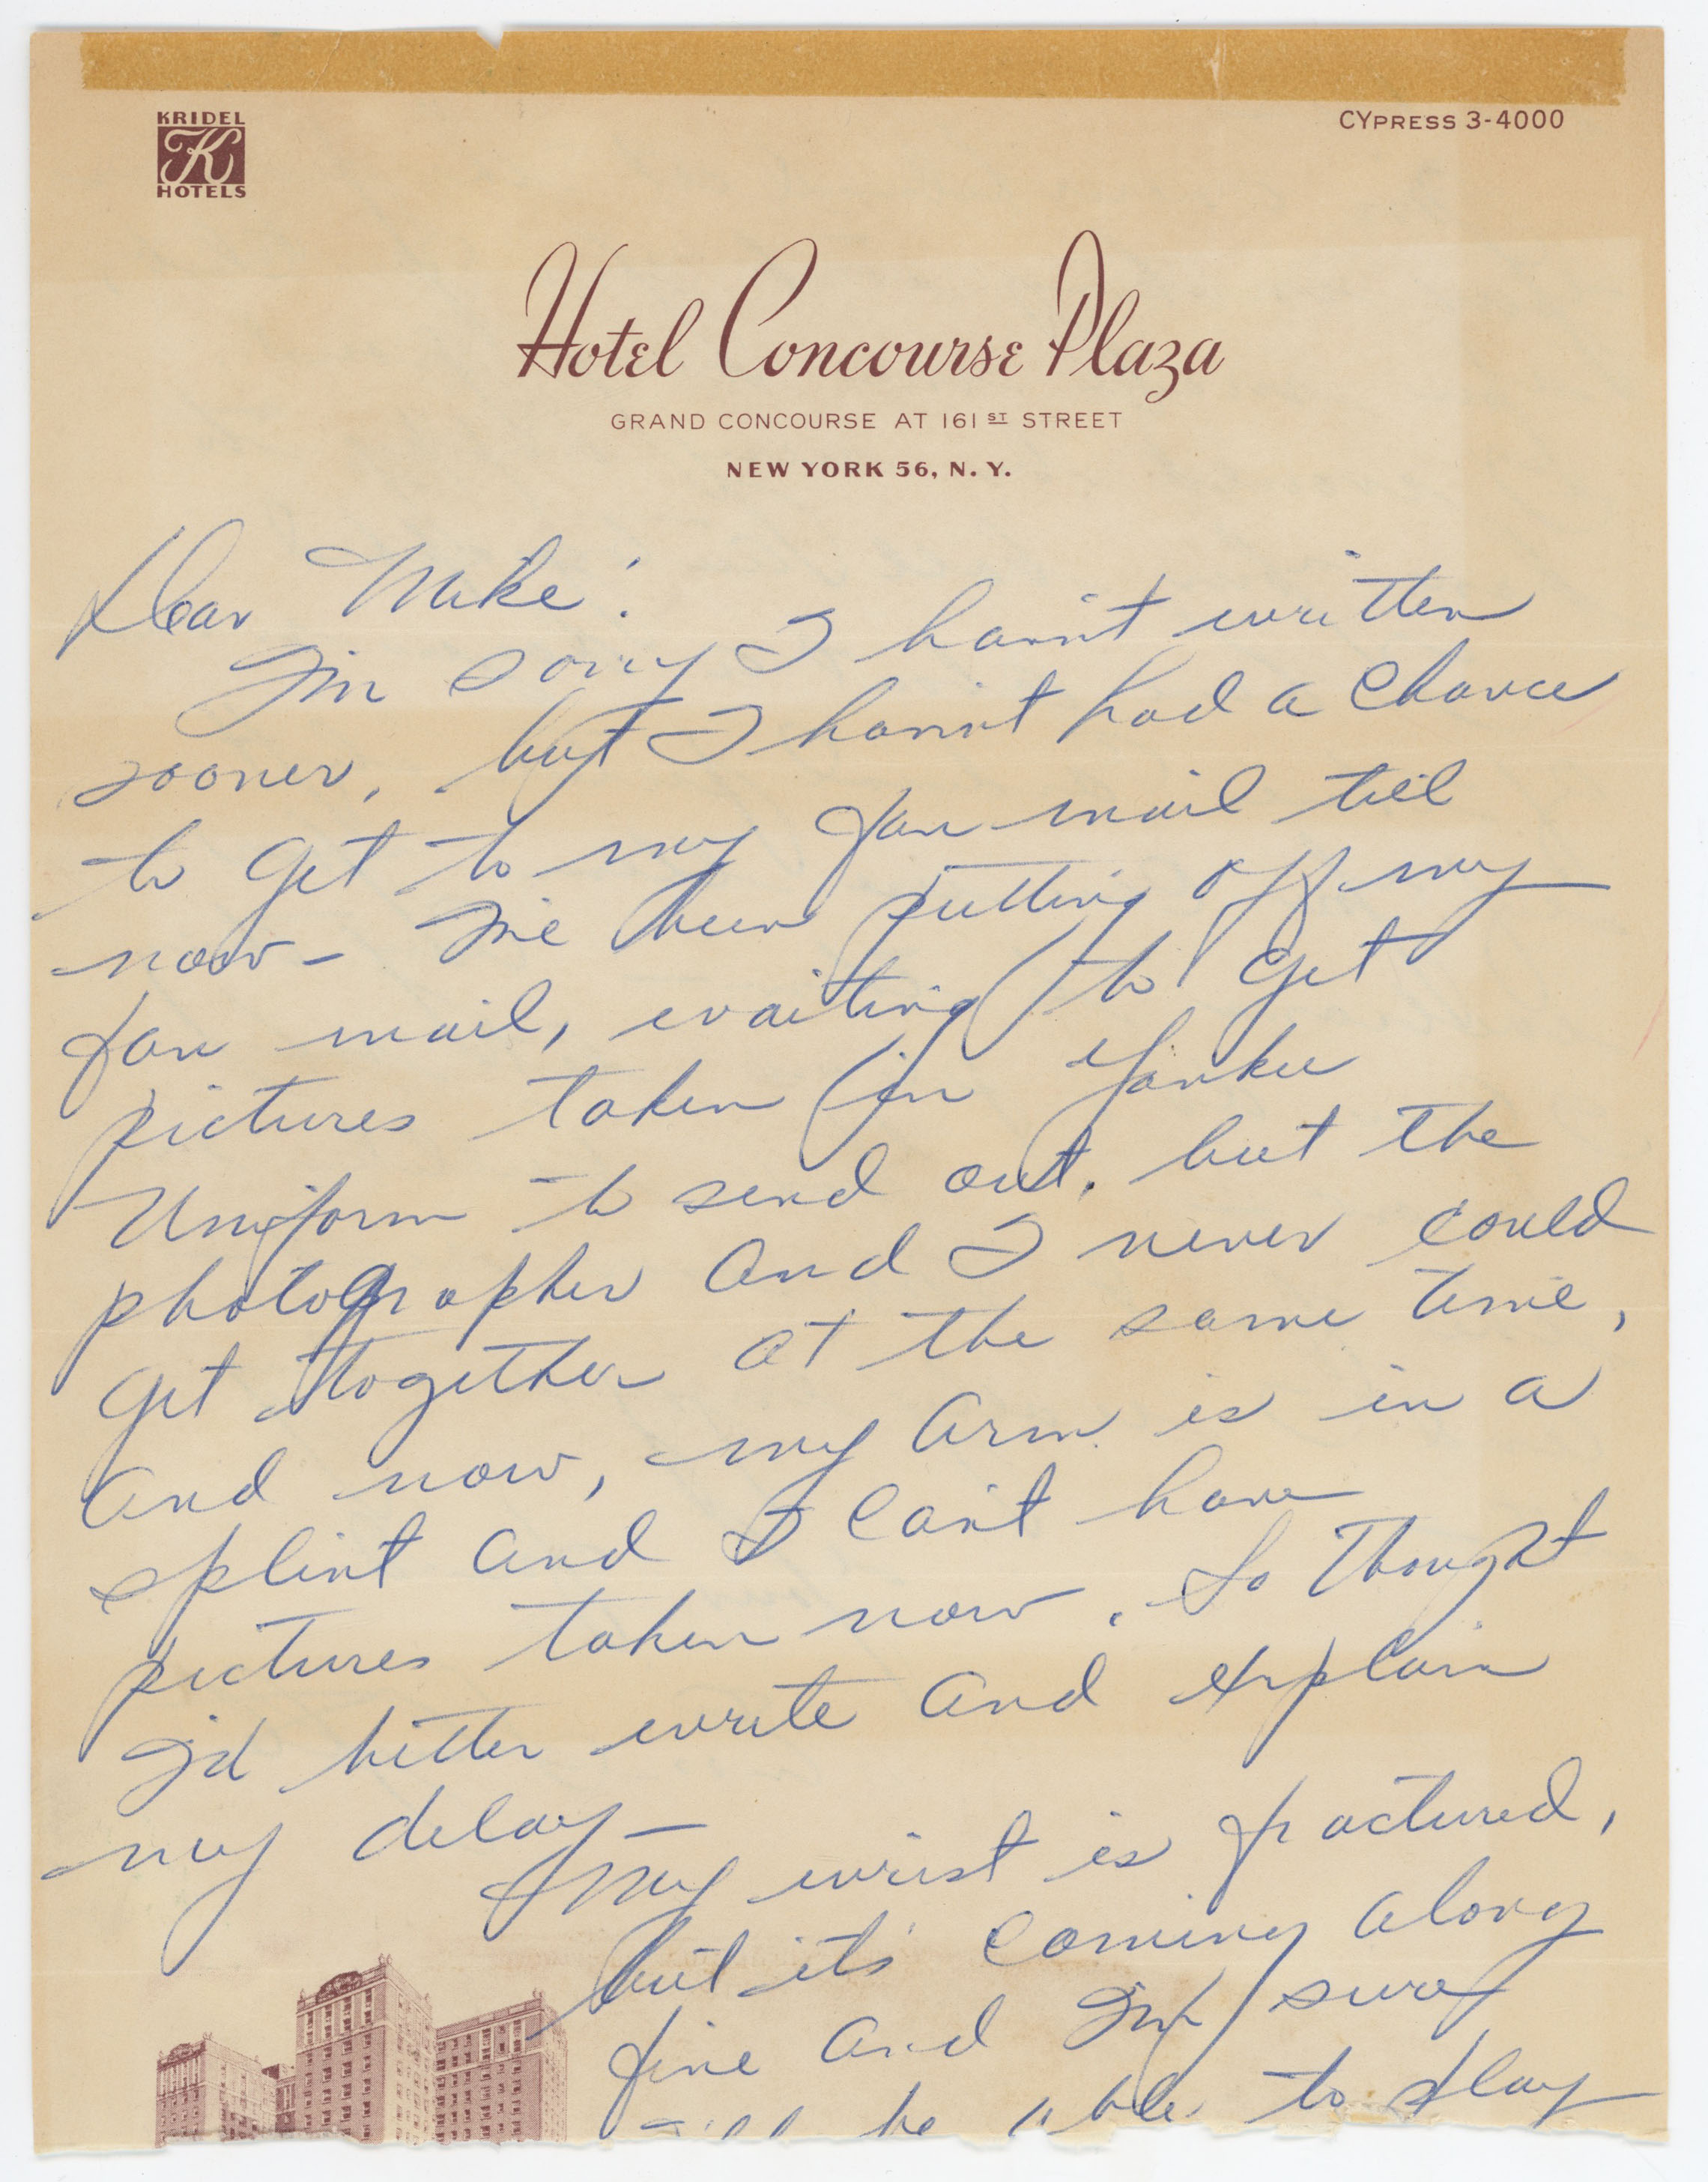 KRIDEL
K
HOTELS
CYPRESS 3-4000
Hotel Concourse Plaza
GRAND CONCOURSE AT 161ST STREET
NEW YORK 56, N. Y.
Dear Mike:
I'm sorry I havn't written
sooner, but I havn't had a chance
to get to my fan mail till
now - I've been putting off my
fan mail, waiting to get
pictures taken in Yankee
Uniform to send out, but the
photographer and I never could
get together at the same time,
and now, my arm is in a
splint and I can't have
pictures taken now. So Thought
I'd better write and explain
my delay -
My wrist is fractured,
but it's coming along
fine and I'm sure
will be able to play